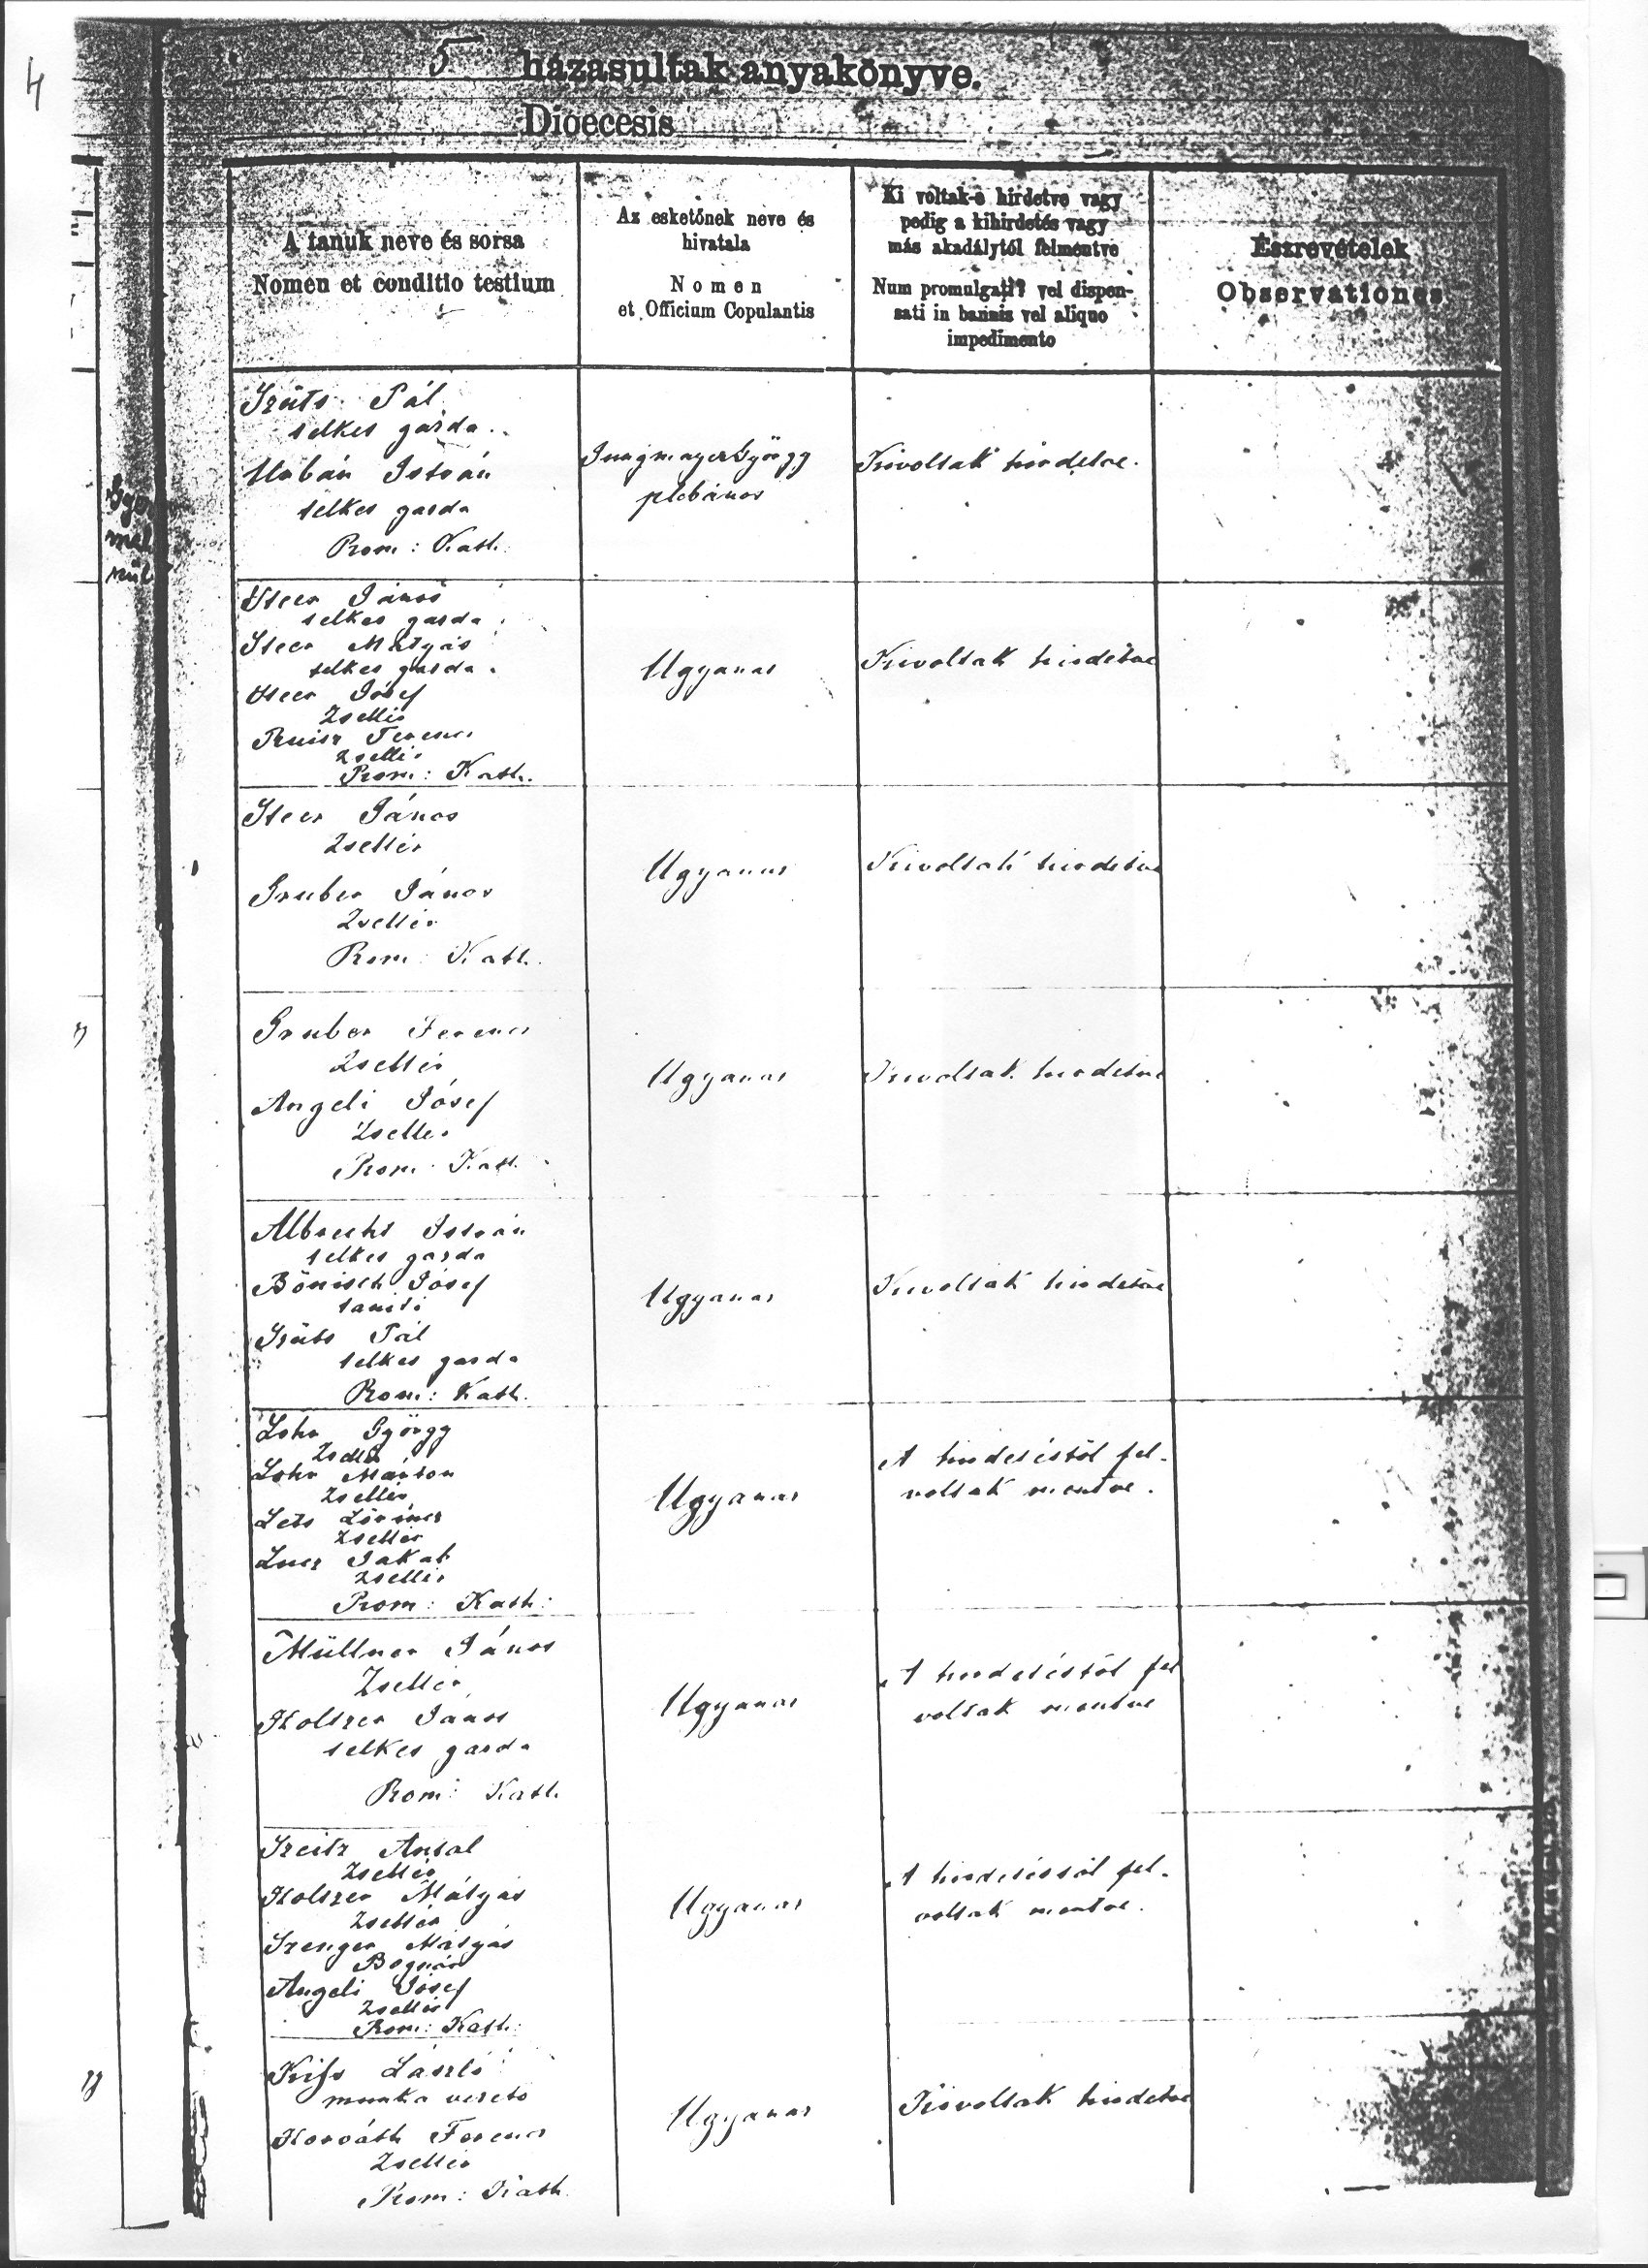 4
5
házasultak anyakönyve.
Dioecesis
A tanúk neve és sorsa
Nomen et conditio testium
Az esketőnek neve és
hivatala
Nomen
et Officium Copulantis
Ki voltak-e hirdetve vagy
pedig a kihirdetés vagy
más akadálytól felmentve
Num promulgati? vel dispen-
sati in bannis vel aliquo
impedimento
Észrevételek
Observationes
Pál
telkes gazda
Urbán István
telkes gazda
Rom: Kath.
Jungmayer György
plébános
Kivoltak hirdetve.
Steer János
telkes gazda
Steer Mátyás
telkes gazda
Steer Jósef
Zsellér
Ferencz
Zsellér
Rom: Kath.
Ugyanaz
Kivoltak hirdetve
Steer János
Zsellér
Gruber János
Zsellér
Rom: Kath.
Ugyanaz
Kivoltak hirdetve
Gruber Ferencz
Zsellér
Angeli Jósef
Zsellér
Rom: Kath.
Ugyanaz
Kivoltak hirdetve
Albrecht István
telkes gazda
Bönisch Jósef
tanító
Pál
telkes gazda
Rom: Kath.
Ugyanaz
Kivoltak hirdetve
György
Zsellér
Márton
Zsellér
Lőrincz
Zsellér
Jakab
Zsellér
Rom: Kath:
Ugyanaz
A hirdetéstől fel-
voltak mentve.
Müllner János
Zsellér
Holszer János
telkes gazda
Rom: Kath.
Ugyanaz
A hirdetéstől fel
voltak mentve
Szeitz Antal
Zsellér
Holszer Mátyás
Zsellér
Szenger Mátyás
Bognár
Angeli Jósef
Zsellér
Rom: Kath:
Ugyanaz
A hirdetéstől fel-
voltak mentve.
Kiss László
munka vezető
Horváth Ferencz
Zsellér
Rom: Kath.
Ugyanaz
Kivoltak hirdetve